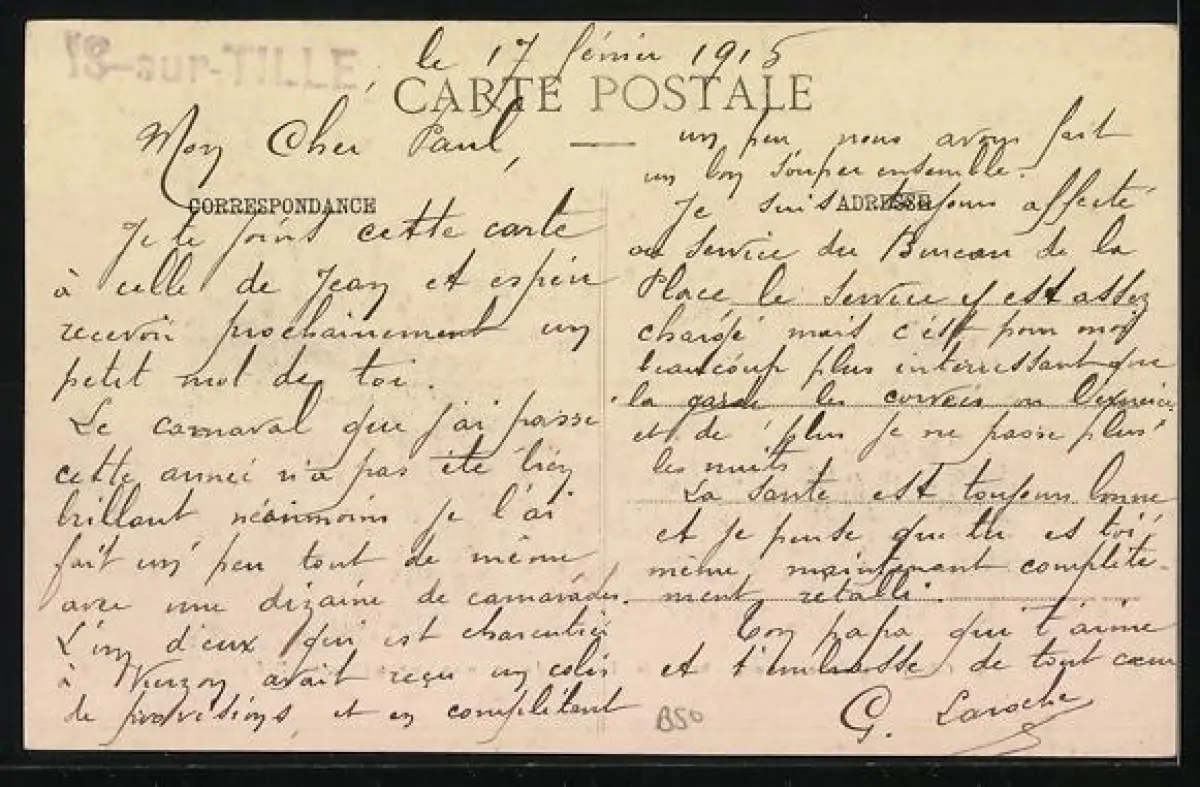 IS-sur-TILLE
le 17 février 1915
CARTE POSTALE
Mon Cher Paul,
CORRESPONDANCE
Je te joins cette carte
à celle de Jean et espère
recevoir prochainement un
petit mot de toi.
Le carnaval que j'ai passé
cette année n'a pas été bien
brillant néanmoins je l'ai
fait un peu tout de même
avec une dizaine de camarades.
L'un d'eux qui est charcutier
à Vierzon avait reçu un colis
de provisions, et en complétant
un peu nous avons fait
un bon souper ensemble.
ADRESSE
Je suis toujours affecté
au service du Bureau de la
Place le service y est assez
chargé mais c'est pour moi
beaucoup plus interressant que
la garde les corvées ou l'exercice
et de plus je ne passe plus
les nuits
La santé est toujours bonne
et je pense que tu es toi,
même, maintenant complète-
ment, rétabli.
Ton papa qui t'aime
et t'embrasse de tout cœur
G. Laroche
B50